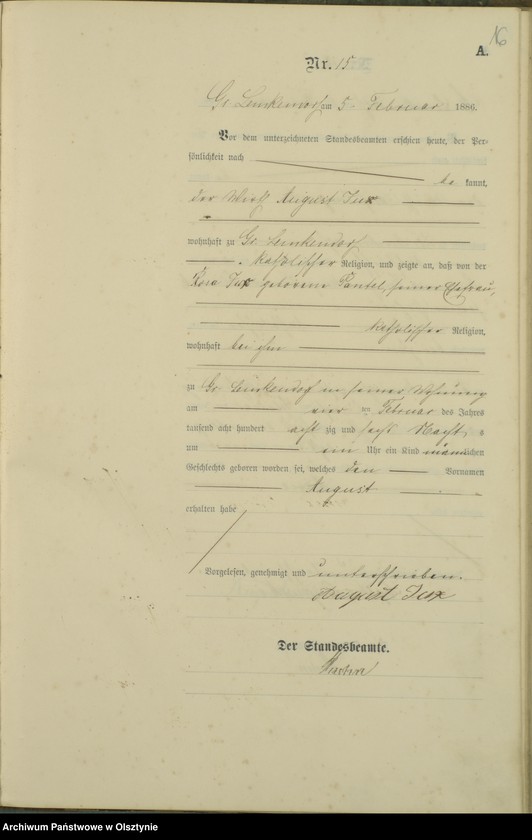 16
A.
Nr. 15
Gr. Lemkendorf am 5. Februar 1886.
Vor dem unterzeichneten Standesbeamten erschien heute, der Per-
sönlichkeit nach
be kannt,
der Wirth August Jux
wohnhaft zu Gr. Lemkendorf
katholischer Religion, und zeigte an, daß von der
Rosa Jux geborene seiner Ehefrau,
katholischer Religion,
wohnhaft bei ihm
zu Gr. Lemkendorf in seiner Wohnung
am vier ten Februar des Jahres
tausend acht hundert acht zig und sechs Nachts
um ein Uhr ein Kind männlichen
Geschlechts geboren worden sei, welches den Vornamen
August
erhalten habe
Vorgelesen, genehmigt und unterschrieben.
August Jux
Der Standesbeamte.
Archiwum Państwowe w Olsztynie